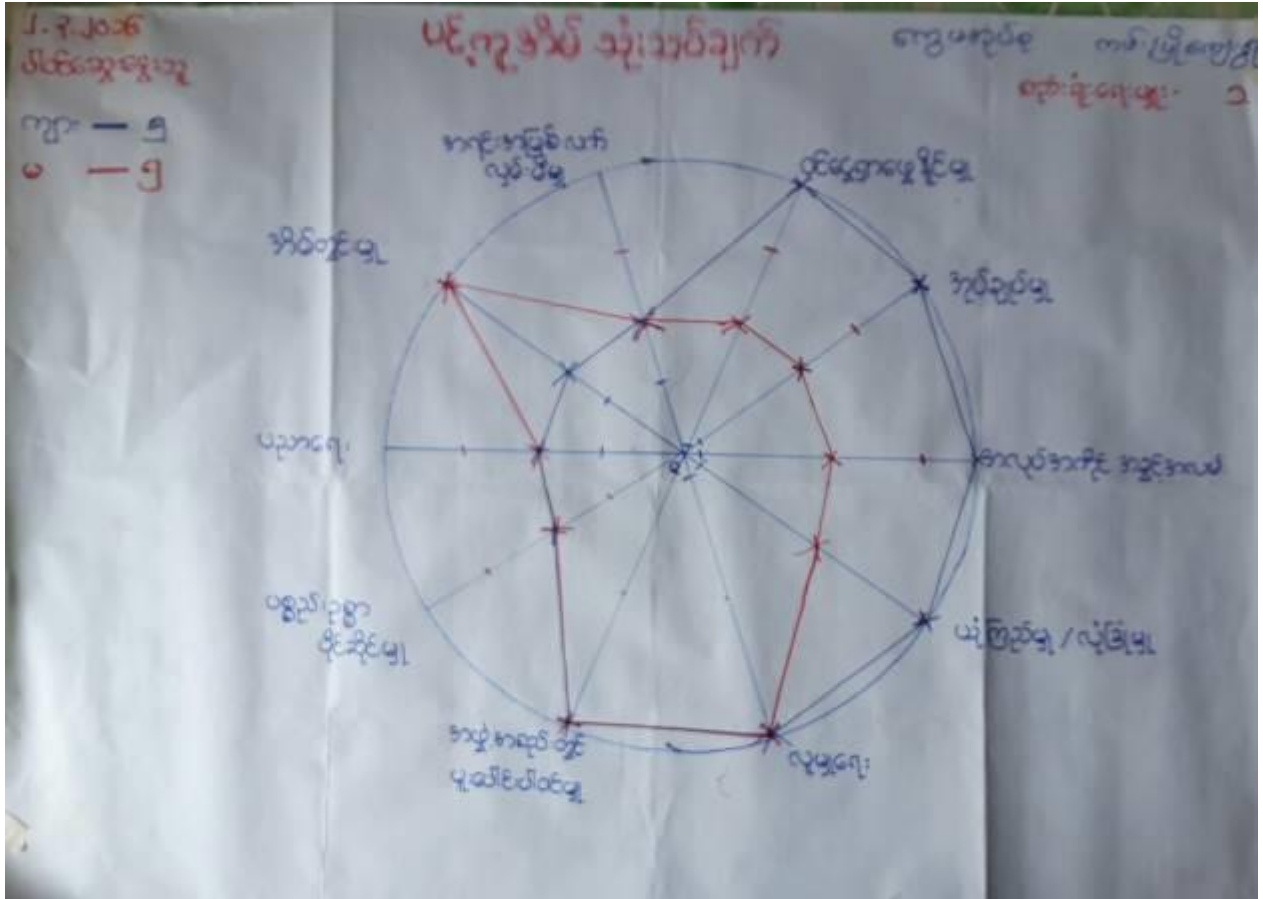 ပင့်ကူအိမ် သုံးသပ်ချက်
ကျား — ၅
မ — ၅
စည်းရုံးရေးမှူး - ၁
အရင်းအမြစ် လက်
လှမ်းမီမှု
ဝင်ငွေရှာဖွေနိုင်မှု
အိမ်တွင်းမှု
အုပ်ချုပ်မှု
ပညာရေး
အလုပ်အကိုင် အခွင့်အလမ်း
ပစ္စည်းဥစ္စာ
ပိုင်ဆိုင်မှု
ယုံကြည်မှု / လုံခြုံမှု
အဖွဲ့အစည်းတွင်
ပူးပေါင်းပါဝင်မှု
လူမှုရေး